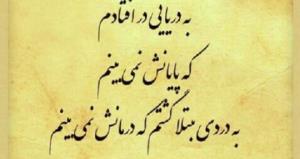 به دریایی در افتادم
که پایانش نمی بینم
به دردی مبتلا گشتم که درمانش نمی بینم